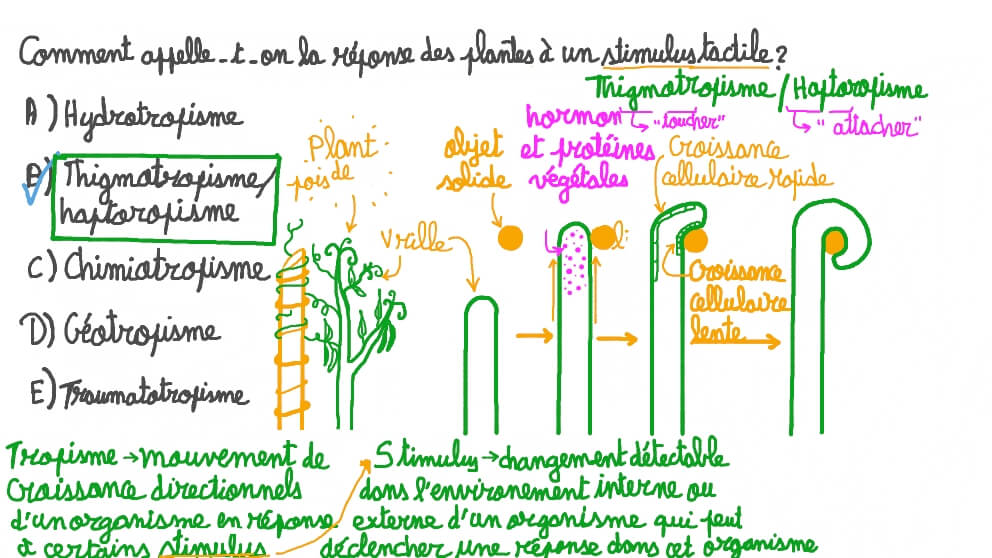 Comment appelle-t-on la réponse des plantes à un stimulus tactile ?
Thigmotropisme / Haptoropisme
"toucher" "attacher"
A) Hydrotropisme
B) Thigmotropisme/
haptoropisme
C) Chimiotropisme
D) Géotropisme
E) Traumatotropisme
Plant
de
pois
Vrille
objet
solide
hormon
et protéines
végétales
Croissance
cellulaire rapide
Croissance
cellulaire
lente
Tropisme → mouvement de
croissance directionnels
d'un organisme en réponse
à certains stimulus
Stimulus → changement détectable
dans l'environement interne ou
externe d'un organisme qui peut
déclencher une réponse dans cet organisme